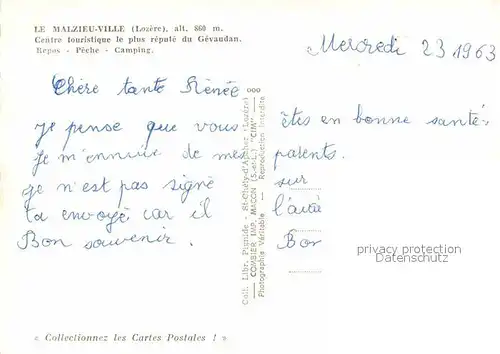 LE MALZIEU-VILLE (Lozère), alt. 860 m.
Centre touristique le plus réputé du Gévaudan.
Repos - Pêche - Camping.
Mercredi 23 1963
Chère tante Rénée
je pense que vous êtes en bonne santé.
je m'ennuie de mes parents.
je n'est pas signé sur
ta envoyé car il l'avait
Bon souvenir. Bon
Coll. Libr. Pignide - St-Chély-d'Apcher (Lozère)
COMBIER IMP. MACON (S.-et-L.) "CIM"
Photographie Véritable - Reproduction Interdite
privacy protection
Datenschutz
« Collectionnez les Cartes Postales ! »